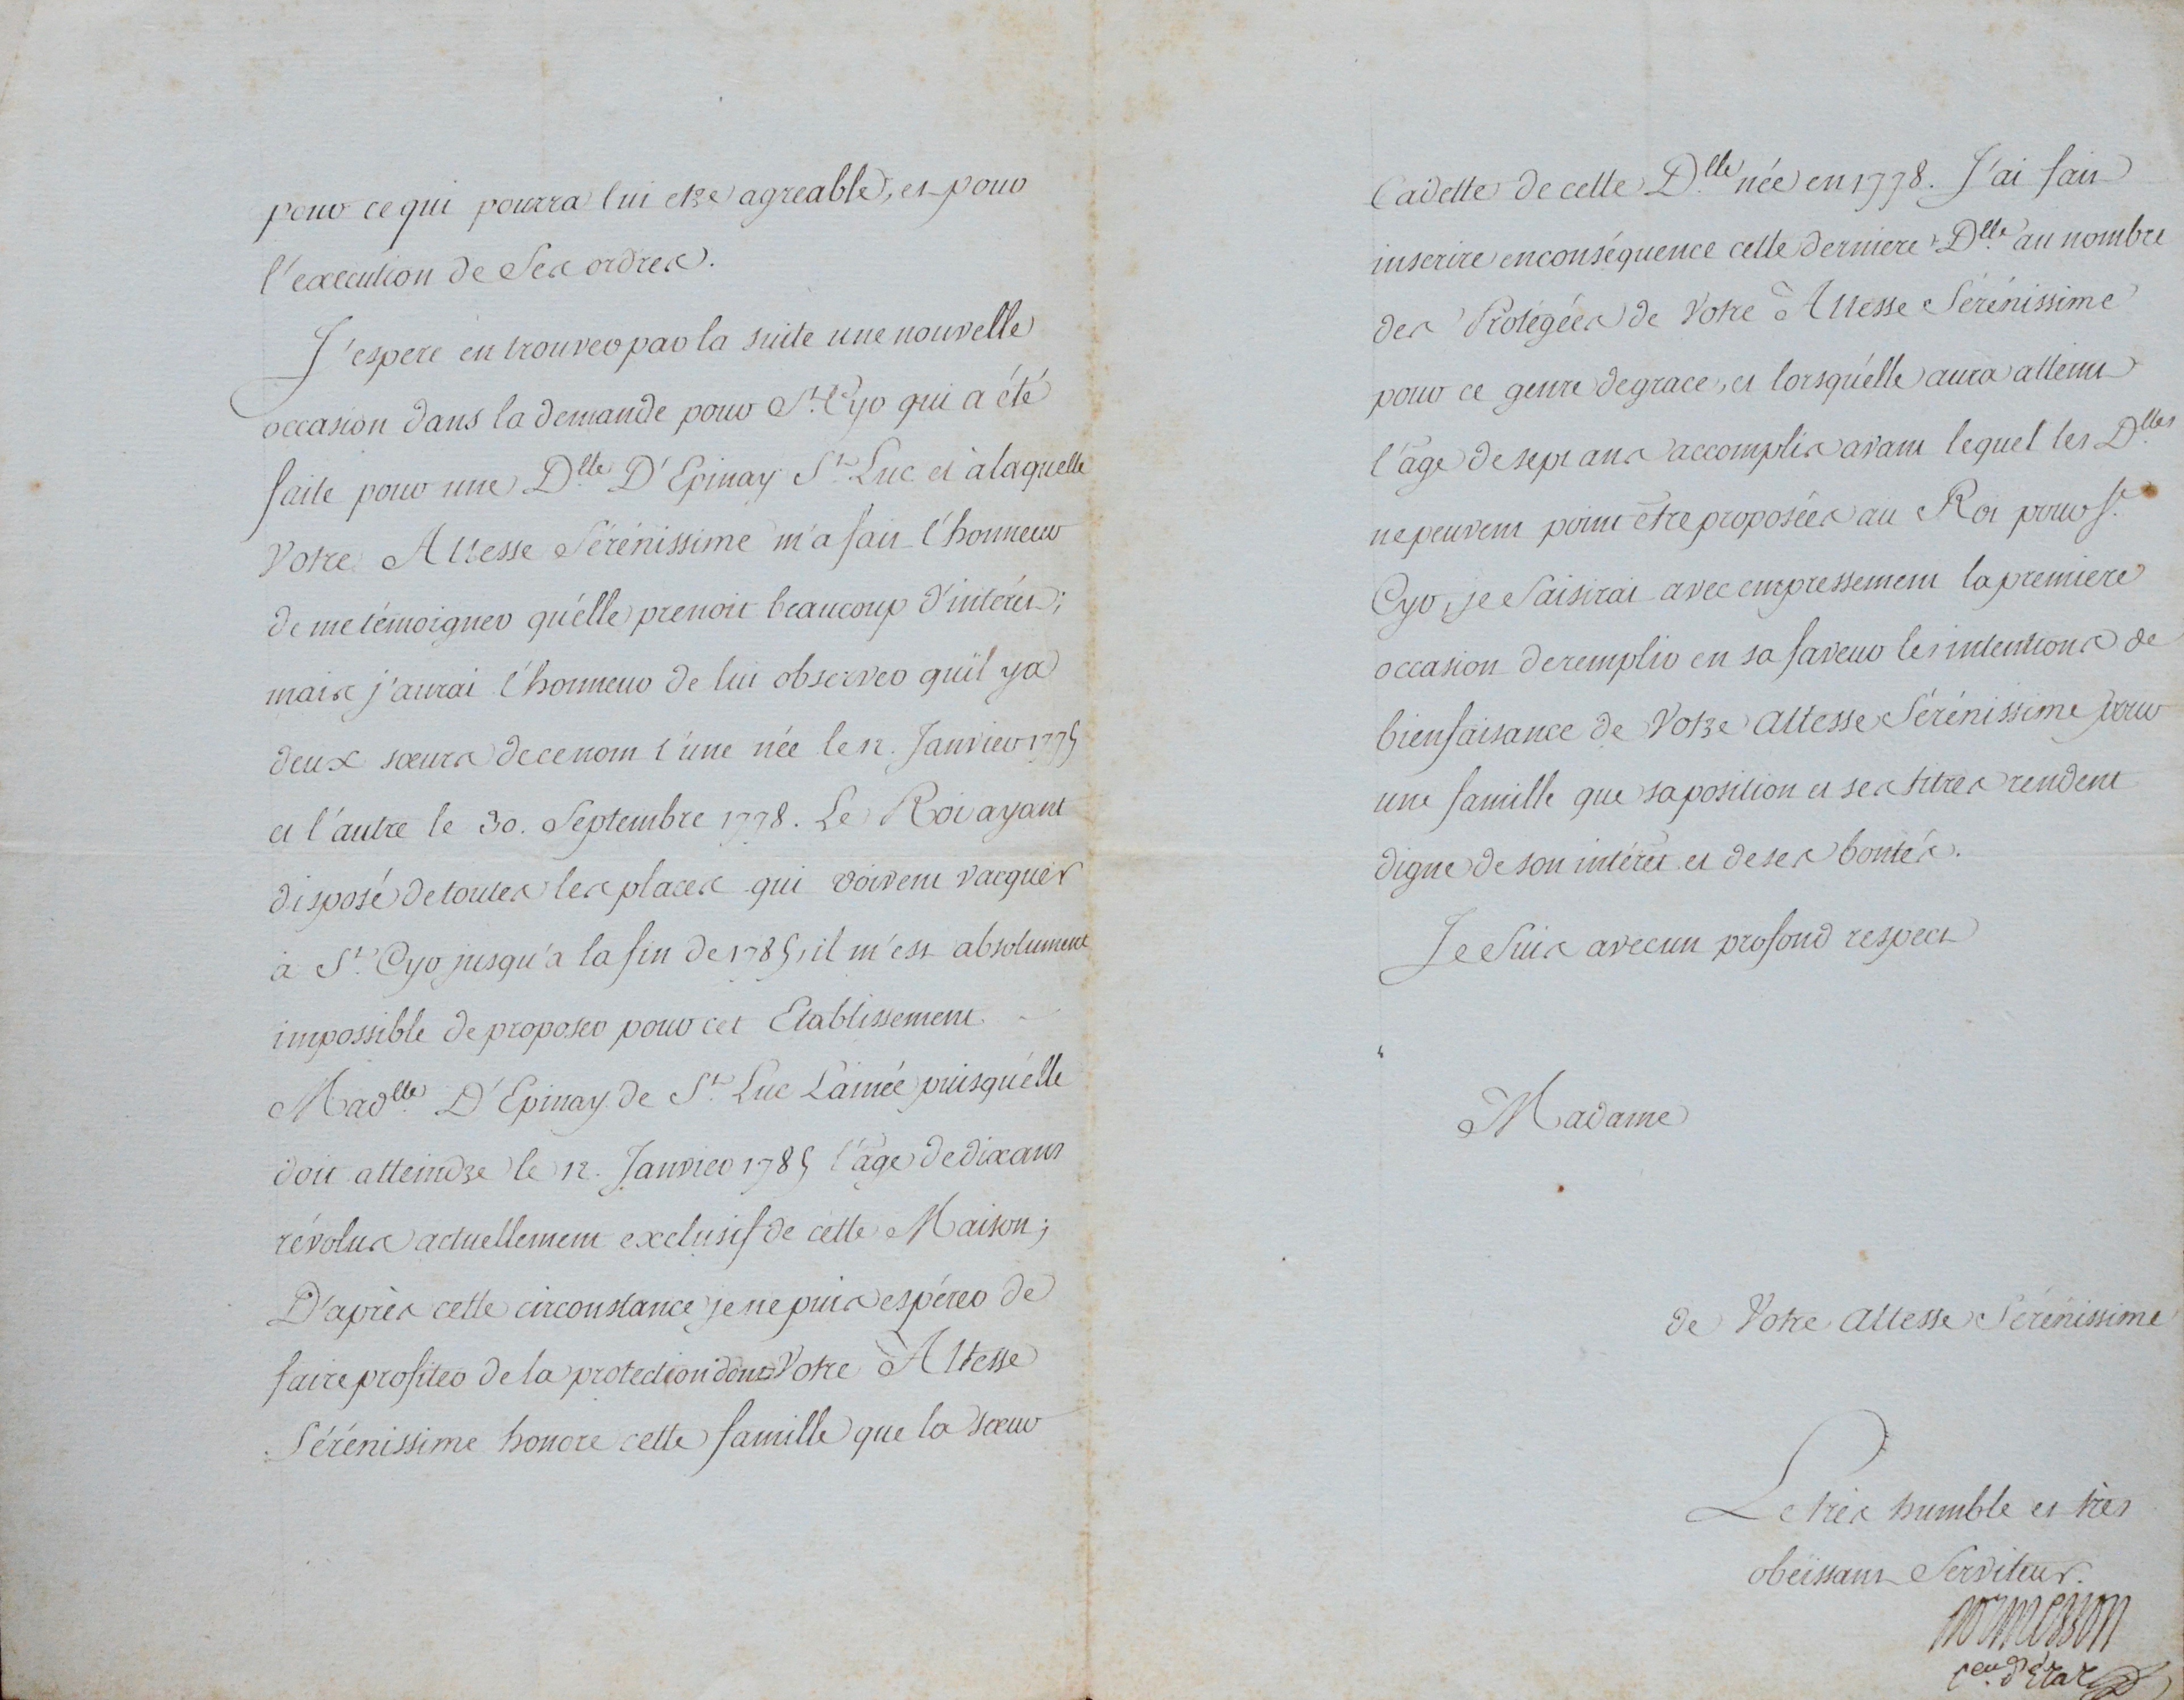 pour ce qui pourra lui etre agreable, et pour
l'execution de Ses ordres.
J'espere en trouver par la suite une nouvelle
occasion dans la demande pour St. Cyr qui a été
faite pour une Dlle. D'Epinay St. Luc et à laquelle
Votre Altesse Sérénissime m'a fait l'honneur
de me témoigner qu'élle prenoit beaucoup d'intérêt;
mais j'aurai l'honneur de lui observer qu'il y a
deux sœurs de ce nom l'une née le 12. Janvier 1775
et l'autre le 30. Septembre 1778. Le Roi ayant
disposé de toutes les places qui doivent vacquer
à St. Cyr jusqu'a la fin de 1785, il m'est absolument
impossible de proposer pour cet Etablissement
Madlle. D'Epinay de St. Luc L'ainée puisqu'élle
doit atteindre le 12. Janvier 1785 l'âge de dix ans
révolus actuellement exclusif de cette Maison;
D'après cette circonstance je ne puis espérer de
faire profiter de la protection dont Votre Altesse
Sérénissime honore cette famille que la sœur
Cadette de cette Dlle. née en 1778. J'ai fait
inscrire en conséquence cette derniere Dlle. au nombre
des Protégées de Votre Altesse Sérénissime
pour ce genre de grace, et lorsqu'élle aura atteint
l'âge de sept ans accomplis avant lequel les Dlles.
ne peuvent point être proposées au Roi pour St.
Cyr, je Saisirai avec empressement la premiere
occasion de remplir en sa faveur les intentions de
bienfaisance de Votre Altesse Sérénissime pour
une famille que sa position et ses titres rendent
digne de son intérêt et de ses bontés.
Je Suis avec un profond respect
Madame
de Votre Altesse Sérénissime
Le très humble et très
obéissant Serviteur.
Dormesson
Cer. d'Etat